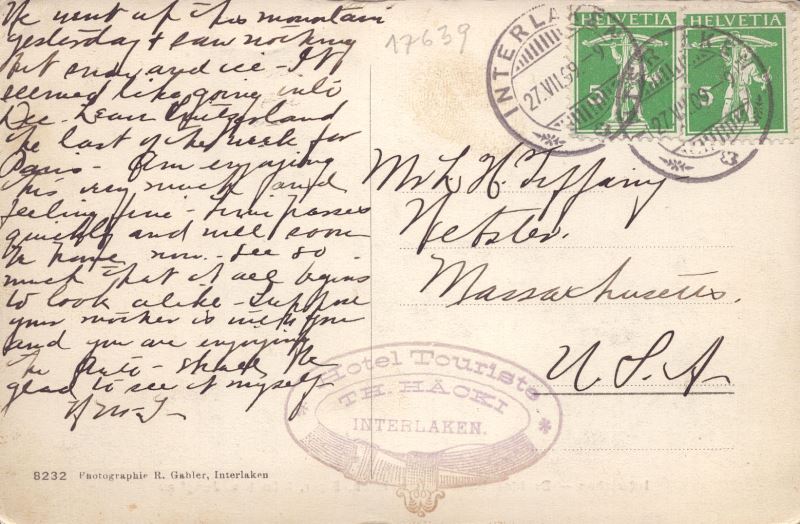 We went up this mountain
yesterday & saw nothing
but snow and ice - It
seemed like going into
Dec. Leave Switzerland
the last of the week for
Paris - Am enjoying
this very much and
feeling fine - Time passes
quickly and will soon
be home now - See so
much that it all begins
to look alike - Suppose
your mother is with you
and you are enjoying
the auto - shall be
glad to see it myself
17639
INTERLAKEN
27.VII.09
HELVETIA
5
HELVETIA
5
INTERLAKEN
27.VII.09
Mr L. H. Tiffany
Webster.
Massachusetts.
U.S.A
Hotel Touriste
TH. HÄCKI
INTERLAKEN.
8232 Photographie R. Gabler, Interlaken